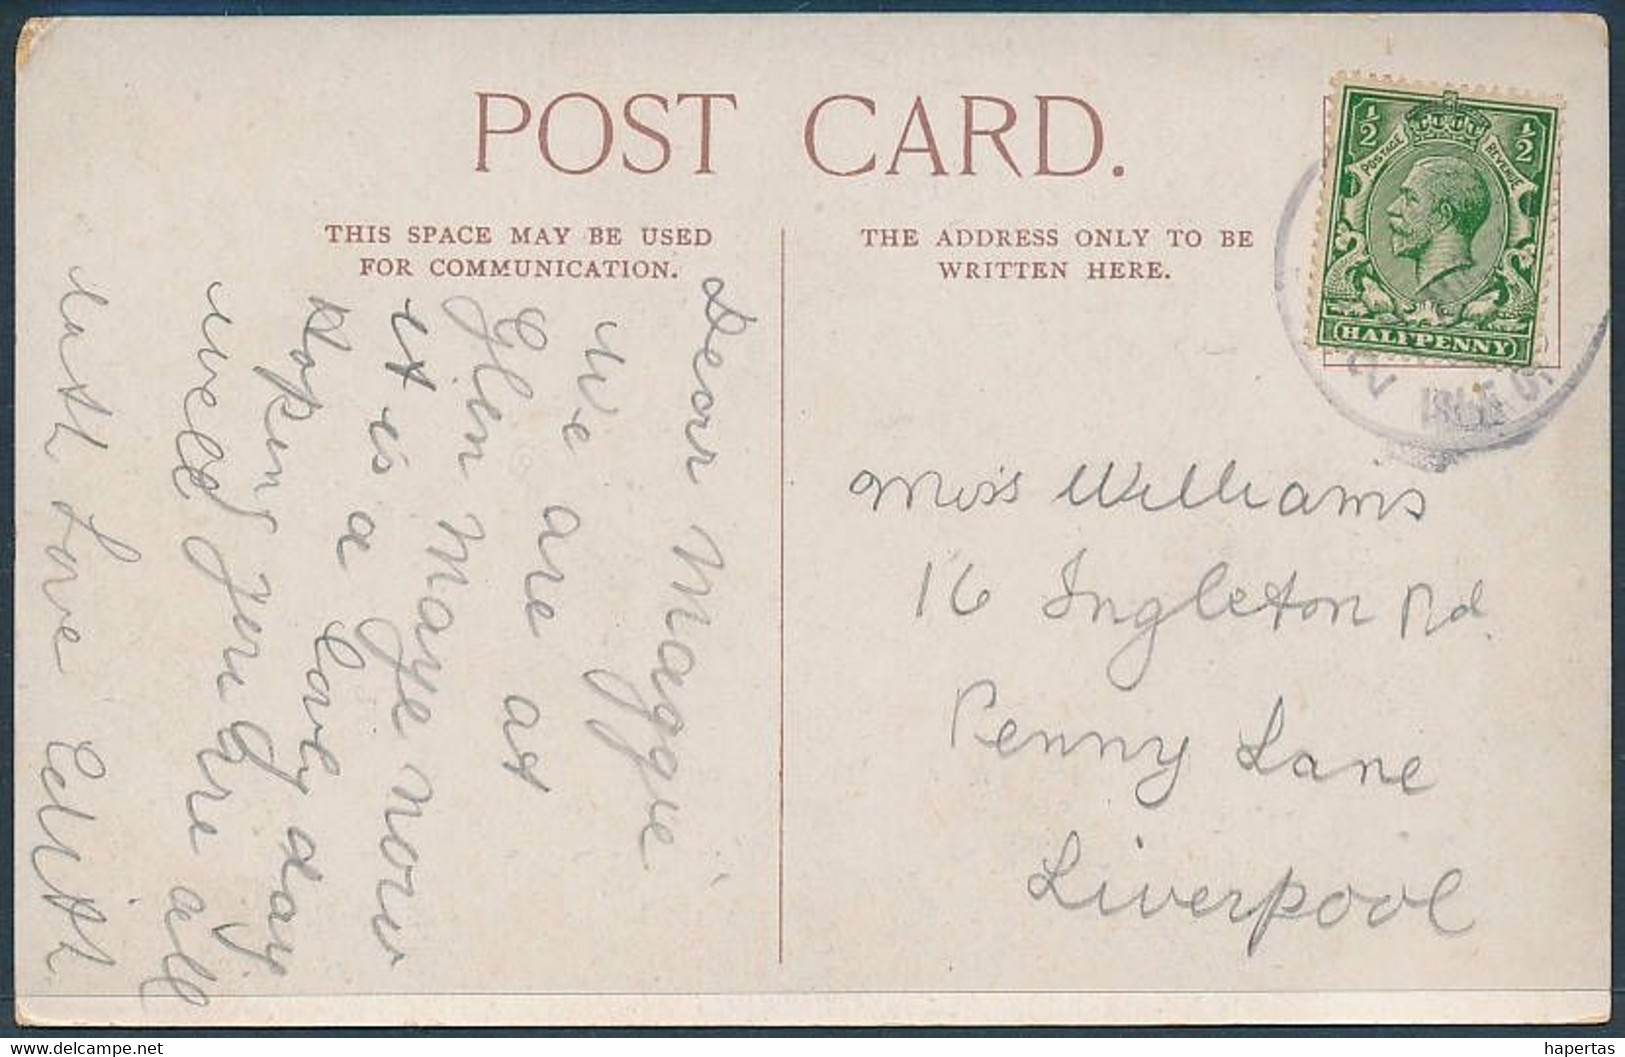 POST CARD.
THIS SPACE MAY BE USED
FOR COMMUNICATION.
THE ADDRESS ONLY TO BE
WRITTEN HERE.
1/2 1/2
POSTAGE REVENUE
HALFPENNY
ISLE O
Dear Maggie
We are at
Glen Maye now
it is a lovely day
hoping
well are all
with Love Edith
Miss Williams
16 Ingleton Rd.
Penny Lane
Liverpool
delcampe.net
hapertas